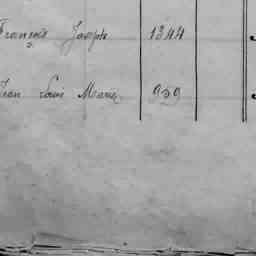 François Joseph 1344
Jean Louis Marie 959